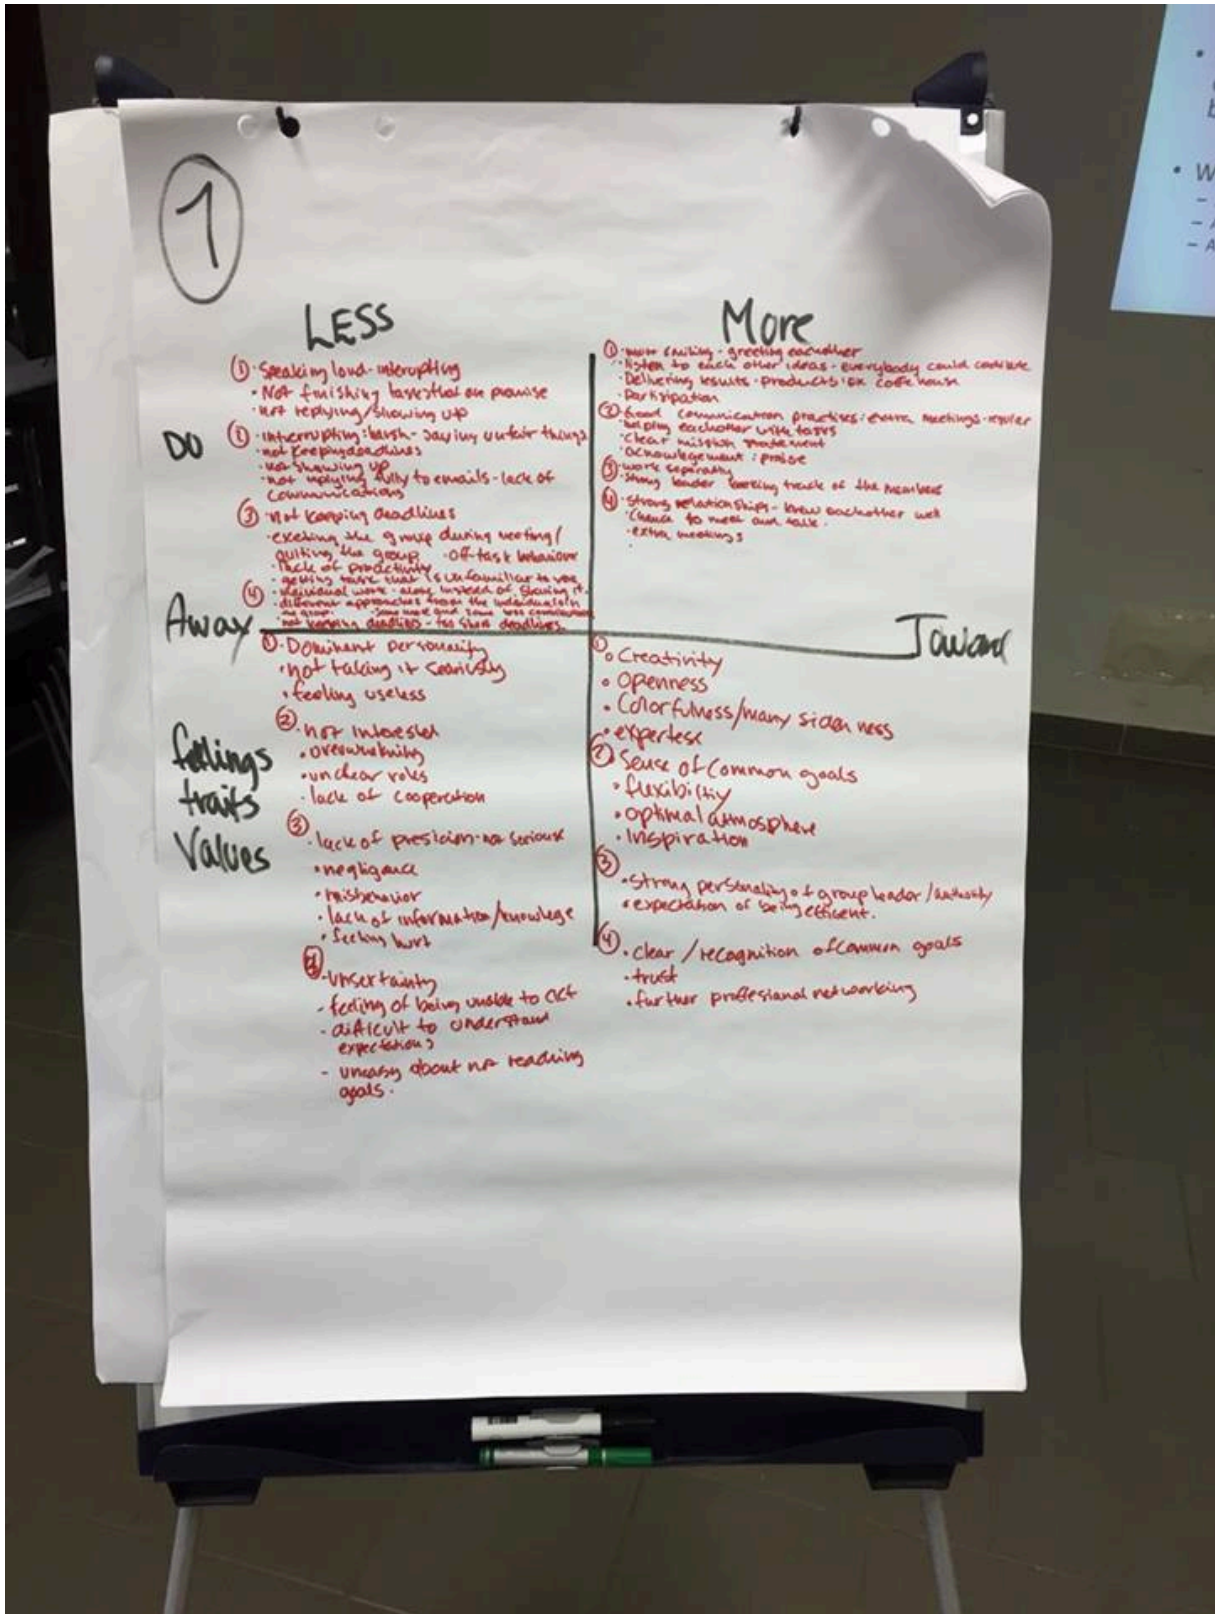 1
LESS
More
DO
Away
Toward
feelings
traits
Values
① · Speaking loud - interrupting
· Not finishing tasks that are promise
· not replying/showing up
② · interrupting : harsh - saying unfair things
· not keeping deadlines
· not showing up
· not replying fully to emails - lack of
communications
③ · not keeping deadlines
· exciting the group during meeting/
quiting the group · off-task behaviour
· lack of proactivity
· getting task that is unfamiliar to you
④ · individual work - alone instead of sharing it.
· different approaches from the individuals in
the group. · some more and some less
· not keeping deadlines - too short deadlines.
① · more smiling - greeting eachother
· listen to each other ideas - everybody could
· Delivering results · products : ex
· Participation
② · Good communication practises : extra meetings - regular
· helping eachother with tasks
· clear mission statement
· : praise
③ · work seperatly
· Strong leader keeping track of the members
④ · Strong relationships - knew eachother well
· Chance to meet and talk.
· extra meetings
① · Dominant personality
· not taking it seariously
· feeling useless
② · not interested
· overwhelming
· unclear roles
· lack of cooperation
③ · lack of presicion - not serious
· negligance
· misbehavior
· lack of information/knowlege
· feeling hurt
④ · unsertainty
- feeling of being unable to act
- dificult to understand
expectations
- uneasy about not reaching
goals.
① · Creativity
· Openness
· Colorfulness/many sidenness
· expertese
② · Sense of Common goals
· flexibiltiy
· optimal atmosphere
· Inspiration
③ · Strong personality of group leader / authority
· expectation of being efficent.
④ · clear / recognition of common goals
· trust
· further proffesianal networking